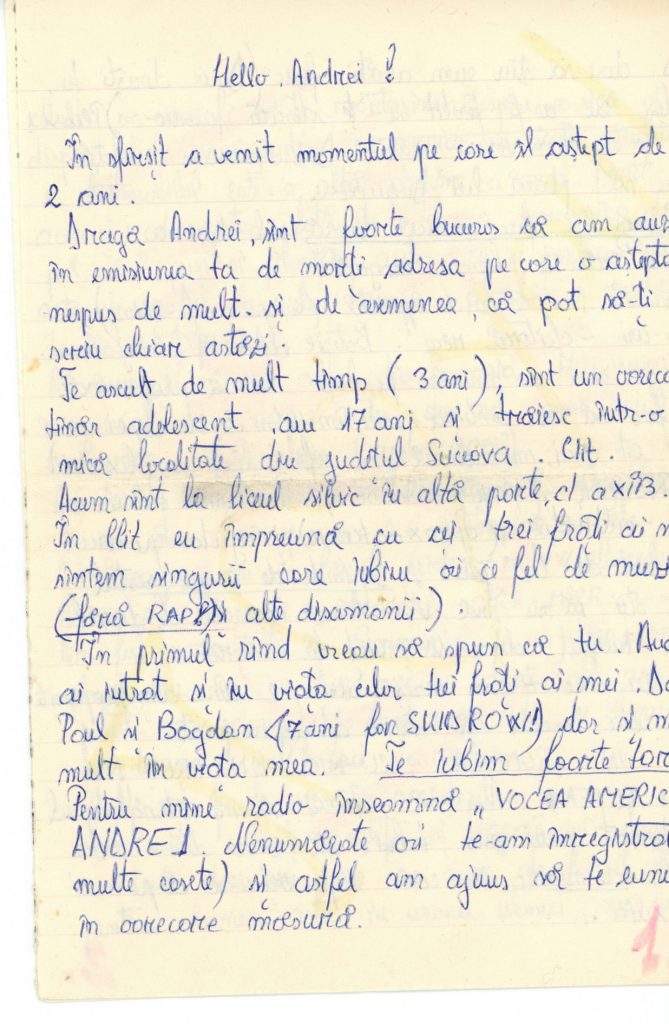 Hello Andrei !
În sfîrșit a venit momentul pe care îl aștept de
2 ani.
Dragă Andrei, sînt foarte bucuros că am auz
în emisiunea ta de marți adresa pe care o aștepta
nespus de mult. și de asemenea, că pot să-ți
scriu chiare astăzi.
Te ascult de mult timp (3 ani) sînt un oareca
tînăr adolescent, am 17 ani și trăiesc într-o
mică localitate din județul Suceava. Clit.
Acum sînt la liceul silvic în altă parte, cl a XI B.
În Clit eu împreună cu cei trei frăți ai m
sîntem singurii care iubim așa fel de muzi
(fără RAP și alte discomanii).
În primul rînd vreau să spun că tu. And
ai intrat și în viața celor trei frăți ai mei. Da
Paul și Bogdan (7 ani fan SUIB ROXX!) dar și m
mult în viața mea. Te iubim foarte tare
Pentru mine radio înseamnă „VOCEA AMERIC
ANDREI. Nenumărate ori te-am înregistrat
multe casete) și astfel am ajuns să te cuno
în oarecare măsură.
1